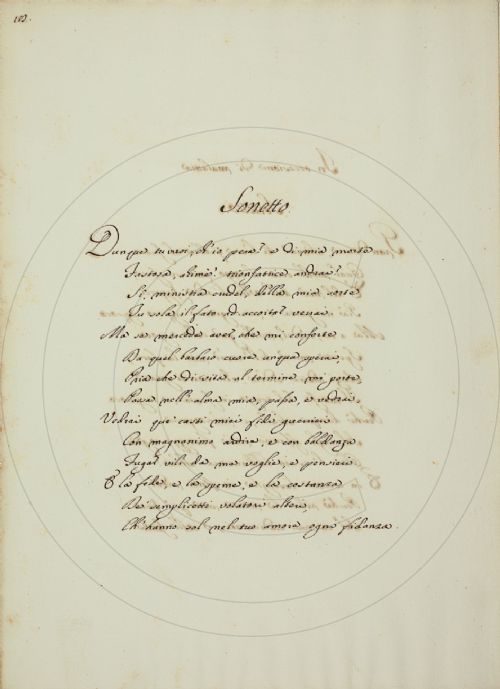 182.
Sonetto
Dunque tu vuoi, ch'io pera? e di mia morte
Fastosa, ahimè! trionfatrice andrai?
Sì, ministra crudel, della mia sorte
Tu sola il fato ad
Ma se mercede aver, che mi conforte
Da quel barbaro cuore unqua
Pria che di vita al termine mi porte,
Passa nell'alma mia, passa, e vedrai
Vedrai que' casti miei fidi guerrieri
Con magnanimo ardire, e con baldanza
Fugar vili da me voglie, e pensieri
E la fede, e la speme, e la costanza
De' semplicetti volatori alteri,
Ch'hanno sol nel tuo amore ogni fidanza.